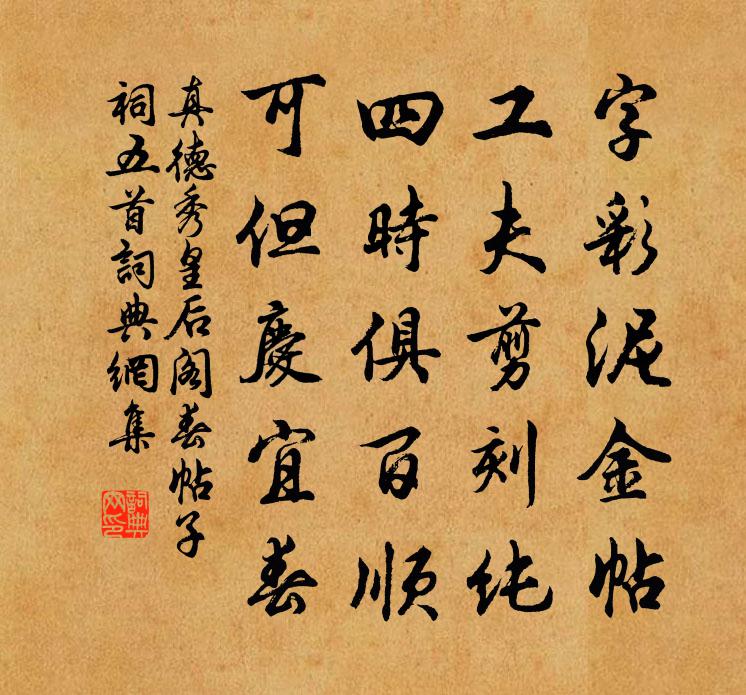 字彩泥金帖
工夫剪刻纯
四時俱百順
可但慶宜春
真德秀皇后阁春帖子
祠五首詞典網集
詞典網印